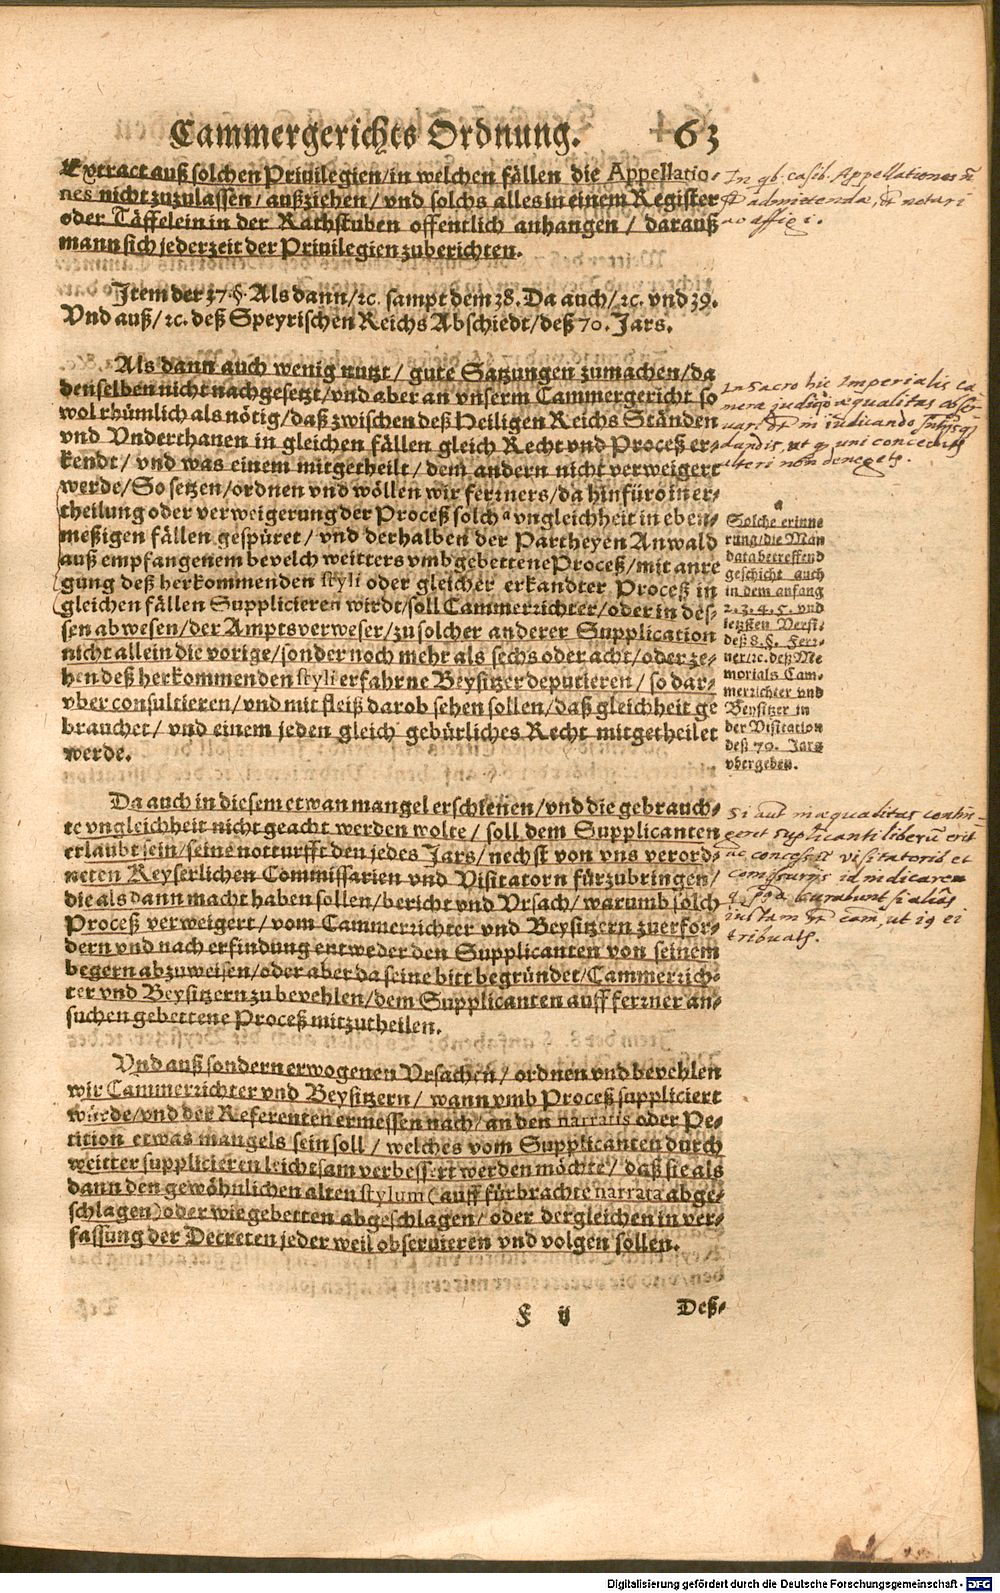 Cammergerichts Ordnung. 63
Extract auß solchen Priuilegien/in welchen fällen die Appellatio-
nes nicht zuzulassen/außziehen/vnd solchs alles in einem Register
oder Täffelein in der Rathstuben offentlich anhangen/darauß
mann sich jederzeit der Priuilegien zuberichten.
Item der 37.§. Als dann/ꝛc. sampt dem 38. Da auch/ꝛc. vnd 39.
Vnd auß/ꝛc. deß Speyrischen Reichs Abschiedt/deß 70. Jars.
Als dann auch wenig nutzt/gute Satzungen zumachen/da
denselben nicht nachgesetzt/vnd aber an vnserm Cammergericht so
wol rhümlich als nötig/daß zwischen deß Heiligen Reichs Ständen
vnd Vnderthanen in gleichen fällen gleich Recht vnd Proceß er-
kendt/vnd was einem mitgetheilt/dem andern nicht verweigert
werde/So setzen/ordnen vnd wöllen wir ferrners/da hinfüro in er-
theilung oder verweigerung der Proceß solch a vngleichheit in eben-
meßigen fällen gespüret/vnd derhalben der Partheyen Anwald
auß empfangenem bevelch weitters vmb gebettene Proceß/mit anre
gung deß herkommenden styli oder gleicher erkandter Proceß in
gleichen fällen Supplicieren wirdt/soll Cammerrichter/oder in des-
sen abwesen/der Amptsverweser/zu solcher anderer Supplication
nicht allein die vorige/sonder noch mehr als sechs oder acht/oder ze-
hen deß herkommenden styli erfahrne Beysitzer deputieren/so dar-
vber consultieren/vnd mit fleiß darob sehen sollen/daß gleichheit ge
brauchet/vnd einem jeden gleich gebürliches Recht mitgetheilet
werde.
Da auch in diesem etwan mangel erschienen/vnd die gebrauch-
te vngleichheit nicht geacht werden wolte/soll dem Supplicanten
erlaubt sein/seine notturfft den jedes Jars/nechst von vns verord-
neten Keyserlichen Commissarien vnd Visitatorn fürzubringen/
die als dann macht haben sollen/bericht vnd Vrsach/warumb solch
Proceß verweigert/vom Cammerrichter vnd Beysitzern zuerfor-
dern vnd nach erfindung entweder den Supplicanten von seinem
begern abzuweisen/oder aber da seine bitt begründet/Cammerrich-
ter vnd Beysitzern zu bevehlen/dem Supplicanten auff ferner an-
suchen gebettene Proceß mitzutheilen.
Vnd auß sondern erwogenen Vrsachen/ordnen vnd bevehlen
wir Cammerrichter vnd Beysitzern/wann vmb Proceß suppliciert
würde/vnd der Referenten ermessen nach/an den narratis oder Pe-
tition etwas mangels sein soll/welches vom Supplicanten durch
weitter supplicieren leichtsam verbessert werden möchte/daß sie als
dann den gewöhnlichen alten stylum (auff fürbrachte narrata abge-
schlagen) oder wie gebetten abgeschlagen/oder dergleichen in ver-
fassung der Decreten jeder weil obseruieren vnd volgen sollen.
ij Deß-
In casib. Appellationes
admittenda, notari
ac affigi.
In Sacro hic Imperialis Ca
mera judicio æqualitas obser
in iudicando
dandis, ut uni
alteri non denegets.
a
Solche erinne
rung/die Man
data betreffend
geschicht auch
in dem anfang
2. 3. 4. 5. vnd
letzsten Versi-
deß 8.§. Ferr-
ner/ꝛc. deß Me
morials Cam-
merrichter vnd
Beysitzer in
der Visitation
deß 70. Jars
vbergeben.
Si aut inæqualitas contin-
geret supplicanti liberu erit
visitatorib et
indicare
curabunt si
iustam ut ei
tribuats.
Digitalisierung gefördert durch die Deutsche Forschungsgemeinschaft - DFG